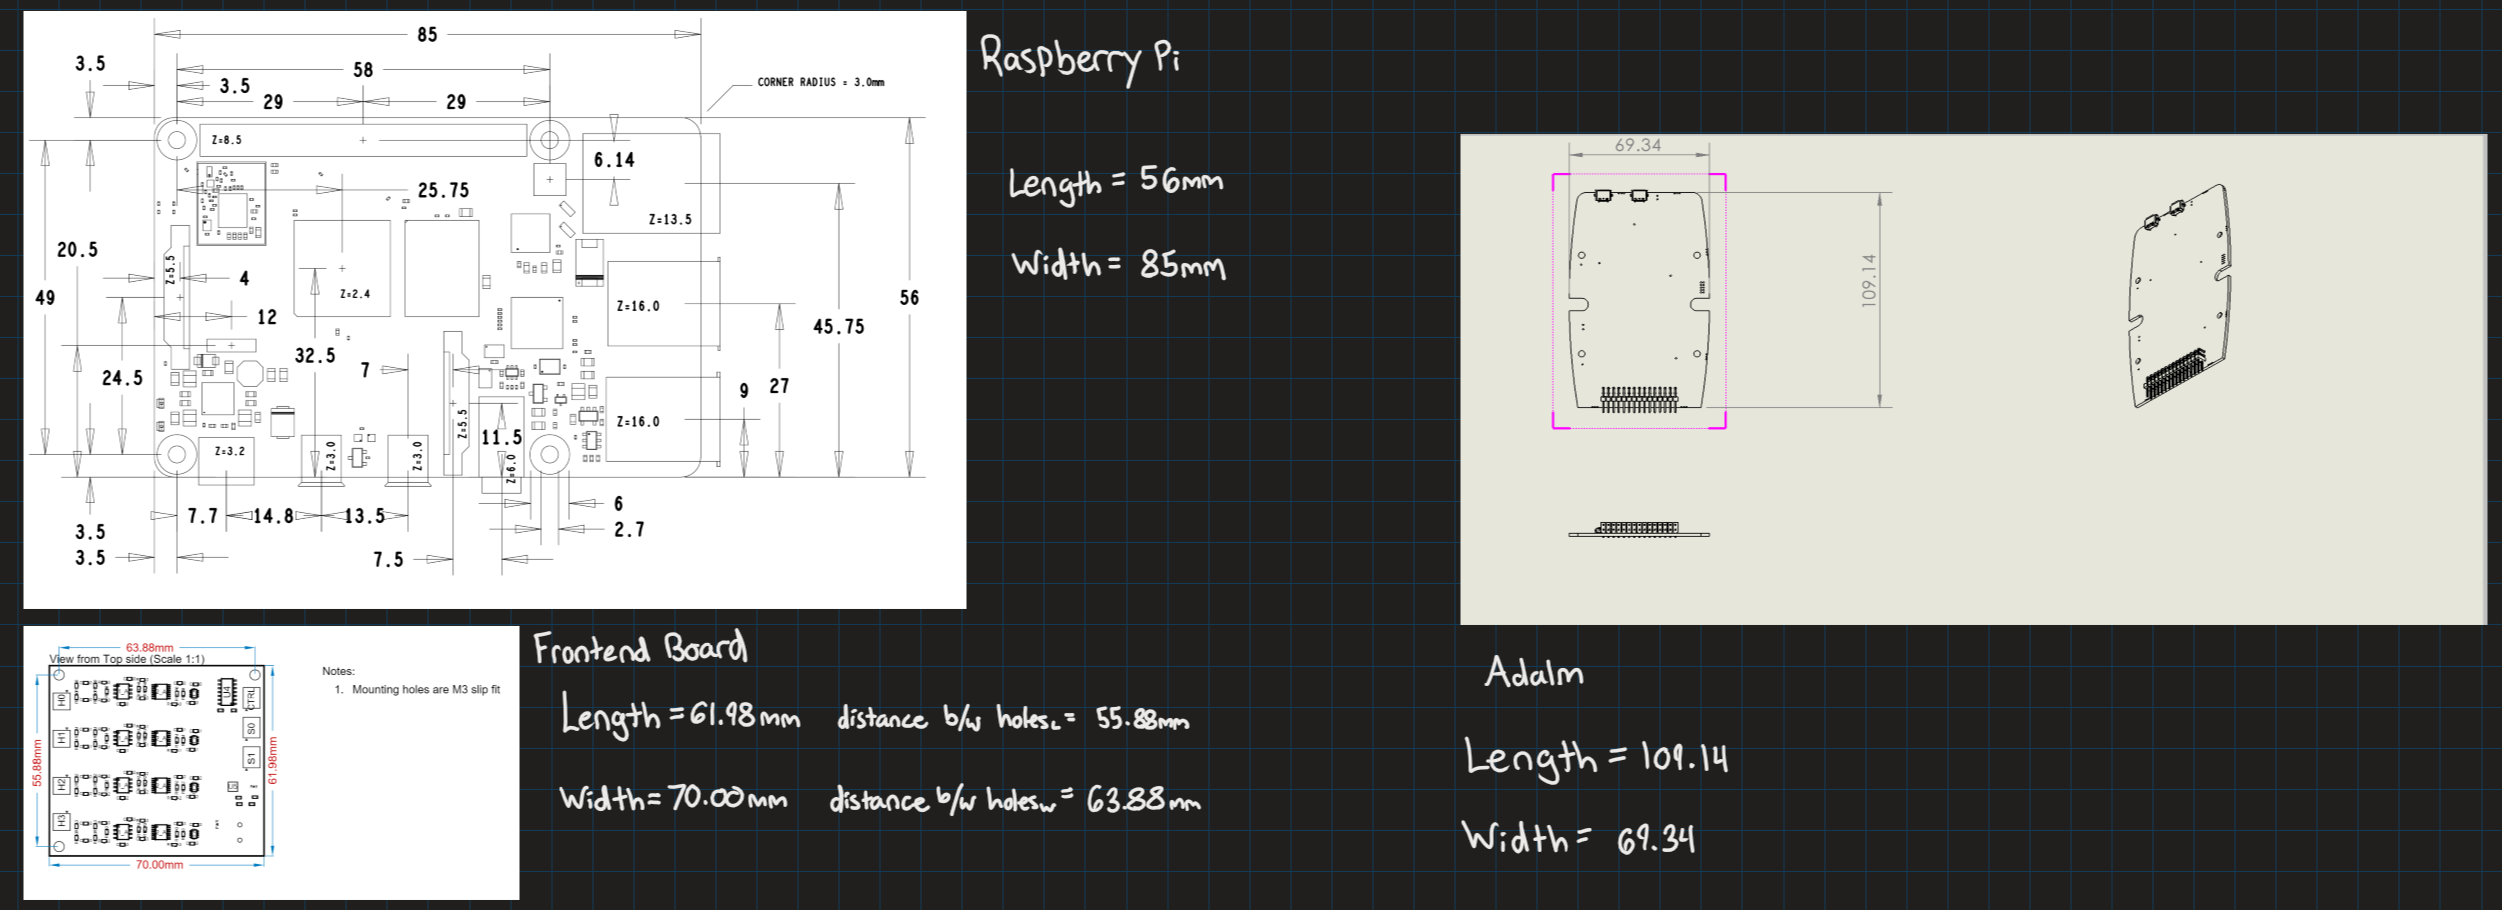 85
3.5
58
3.5
29
29
CORNER RADIUS = 3.0mm
Z=8.5
6.14
25.75
Z=13.5
20.5
Z=5.5
4
Z=2.4
49
12
Z=16.0
56
45.75
32.5
7
24.5
9
27
Z=5.5
11.5
Z=16.0
Z=3.2
Z=3.0
Z=3.0
Z=6.0
6
7.7
14.8
13.5
2.7
3.5
3.5
7.5
Raspberry Pi
Length = 56mm
Width = 85mm
69.34
109.14
63.88mm
View from Top side (Scale 1:1)
Notes:
1. Mounting holes are M3 slip fit
H0
U4
CTRL
H1
S0
S1
H2
H3
55.88mm
61.98mm
70.00mm
Frontend Board
Length = 61.98mm distance b/w holesL = 55.88mm
Width = 70.00mm distance b/w holesw = 63.88mm
Adalm
Length = 109.14
Width = 69.34